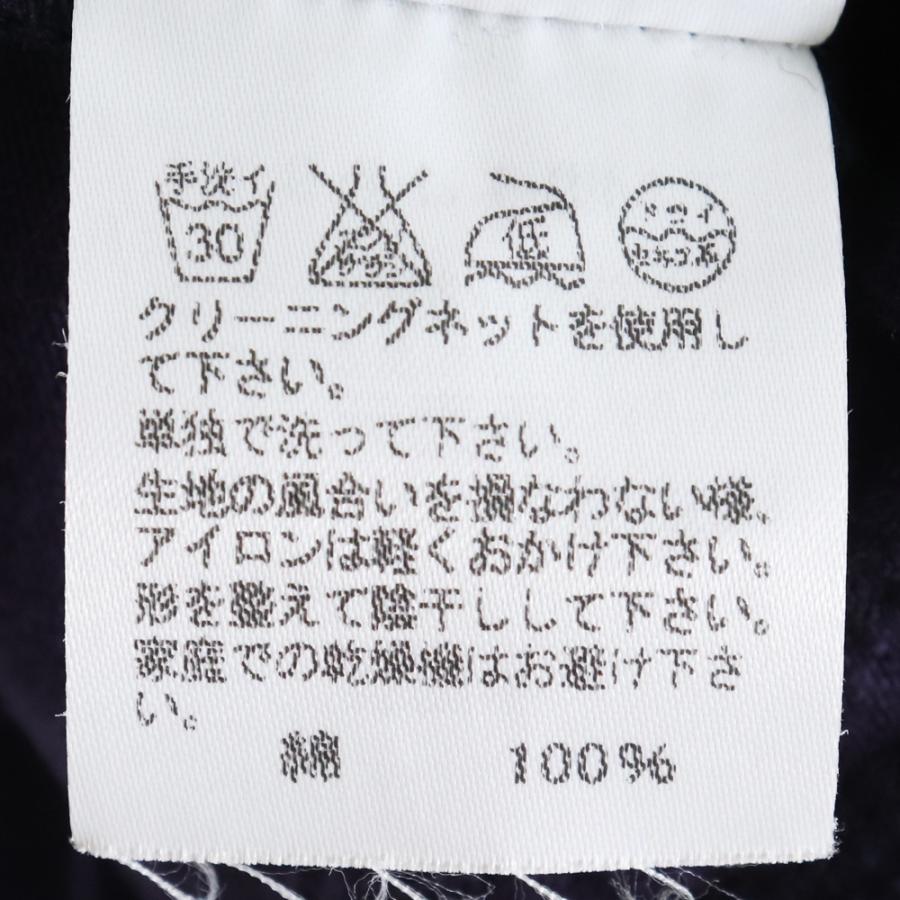 手洗イ
30
エンソ
サラシ
低
ドライ
セキユ系
クリーニングネットを使用し
て下さい。
単独で洗って下さい。
生地の風合いを損なわない様、
アイロンは軽くおかけ下さい。
形を整えて陰干しして下さい。
家庭での乾燥機はお避け下さ
い。
綿 100%